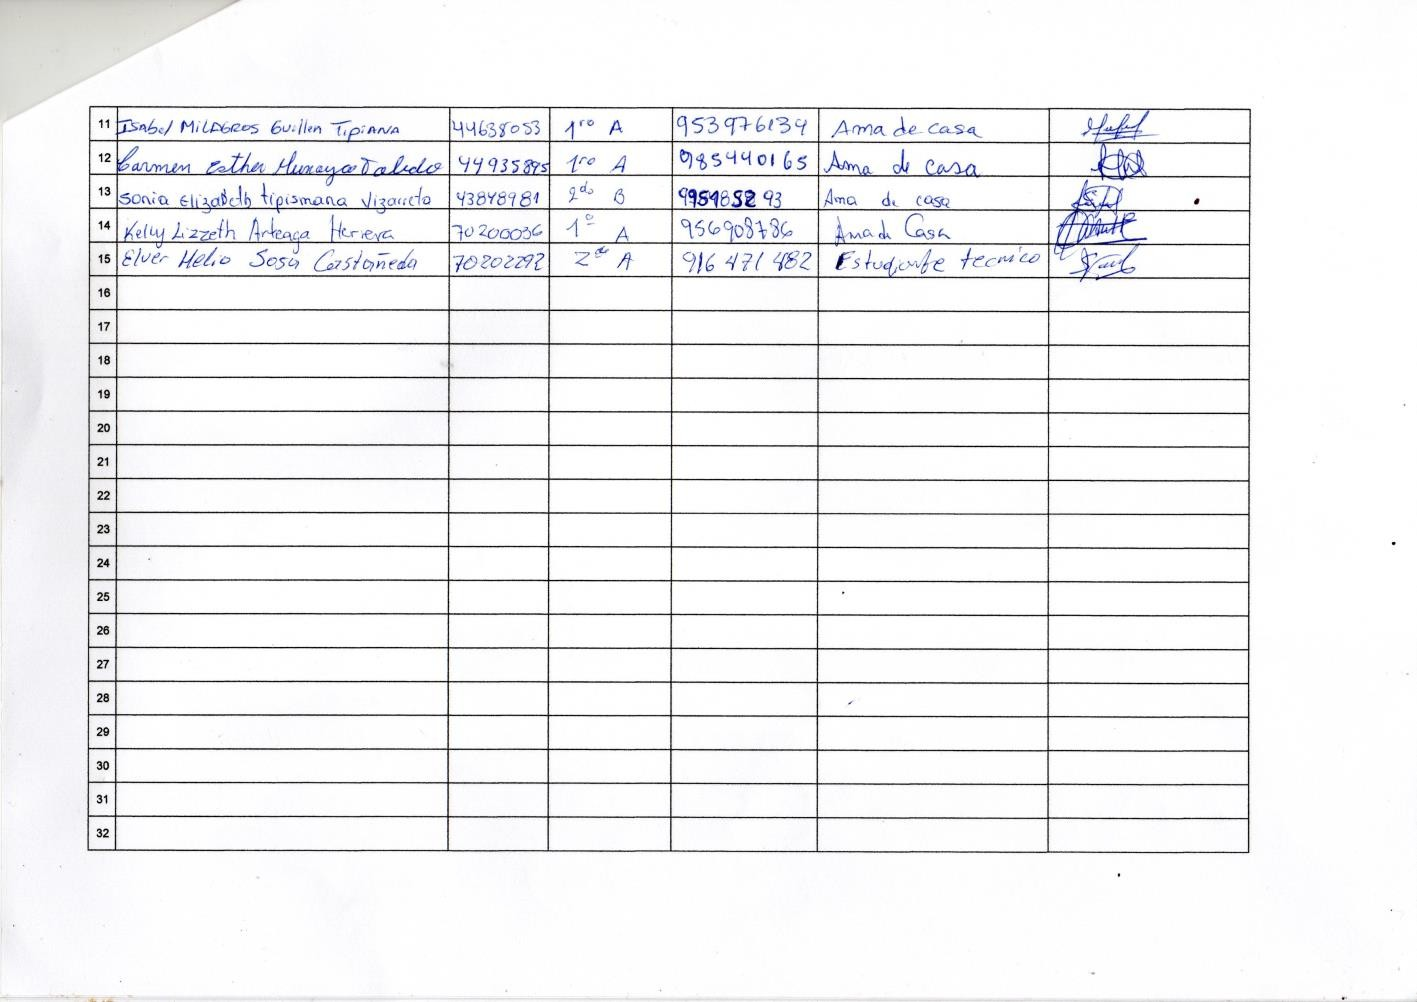 11 Isabel MILAGROS Guillen Tipiana 44638053 1ro A 953976134 Ama de casa
12 Carmen Esther Munayco Toledo 44935895 1ro A 985440165 Ama de casa
13 Sonia Elizabeth tipismana Vizarreta 43848981 2do B 93 Ama de casa
14 Kelly Lizzeth Arteaga Herrera 70200036 1º A 956908786 Ama de Casa
15 Elver Helio Sosa Castañeda 70202292 2do A 916 471 482 Estudiante tecnico
16
17
18
19
20
21
22
23
24
25
26
27
28
29
30
31
32